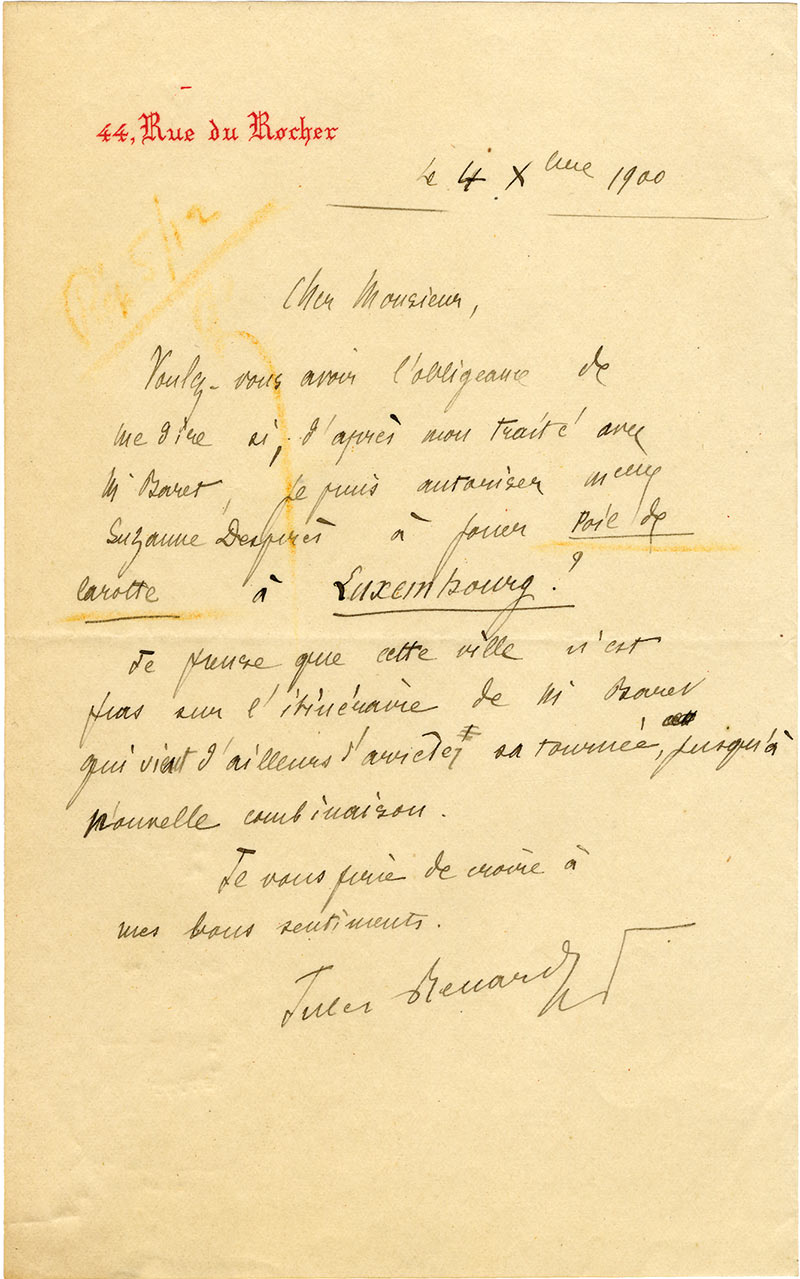 44, Rue du Rocher
Le 4 Xbre 1900
5/12
Cher Monsieur,
Voulez-vous avoir l'obligeance de
me dire si, d'après mon traité avec
M Baret, je puis autoriser Melle
Suzanne Desprès à jouer Poil de
Carotte à Luxembourg?
Je pense que cette ville n'est
pas sur l'itinéraire de M Baret
qui vient d'ailleurs d'arrêter sa tournée, jusqu'à
nouvelle combinaison.
Je vous prie de croire à
mes bons sentiments.
Jules Renard